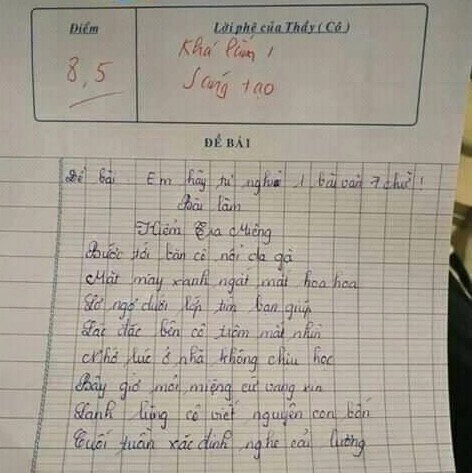 Điểm
Lời phê của Thầy ( Cô )
8,5
Khá lắm !
Sáng tạo
ĐỀ BÀI
Đề bài : Em hãy tự nghĩ 1 bài văn 7 chữ !
Bài làm
Kiểm Tra Miệng
Bước tới bàn cô nổi da gà
Mặt mày xanh ngát mắt hoa hoa
Lơ ngơ dưới lớp tìm bạn giúp
Lác đác bên cô trộm mắt nhìn
Nhớ lúc ở nhà không chịu học
Bây giờ mới miệng cứ vang xin
Lạnh lùng cô viết nguyên con bốn
Cuối tuần xác định nghe cải lương